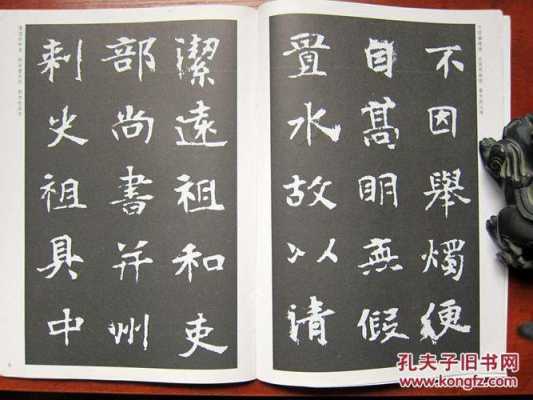 不因舉燭便
自髙明無假
置水故以清
潔遠祖和吏
部尚書并州
刺史祖具中
孔夫子旧书网
www.kongfz.com